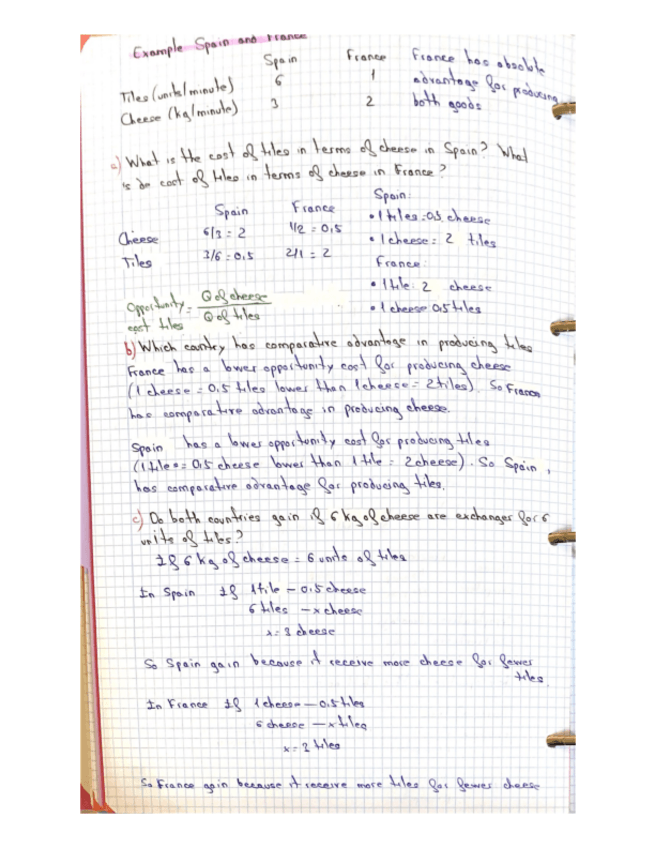 Example Spain and France
Spain France France has absolute
Tiles (units/minute) 6 1 advantage for producing
Cheese (kg/minute) 3 2 both goods
a) What is the cost of tiles in terms of cheese in Spain? What
is de cost of tiles in terms of cheese in France?
Spain France
Cheese 6/3 = 2 1/2 = 0,5
Tiles 3/6 = 0,5 2/1 = 2
Spain:
• 1 tiles = 0,5 cheese
• 1 cheese = 2 tiles
France:
• 1 tile = 2 cheese
• 1 cheese 0,5 tiles
Opportunity cost tiles = Q of cheese / Q of tiles
b) Which country has comparative advantage in producing tiles
France has a lower opportunity cost for producing cheese
(1 cheese = 0,5 tiles lower than 1 cheese = 2 tiles). So France
has comparative advantage in producing cheese.
Spain has a lower opportunity cost for producing tiles
(1 tile = 0,5 cheese lower than 1 tile = 2 cheese). So Spain,
has comparative advantage for producing tiles.
c) Do both countries gain if 6 kg of cheese are exchanger for 6
units of tiles?
If 6 kg of cheese = 6 units of tiles
In Spain If 1 tile – 0,5 cheese
6 tiles – x cheese
x = 3 cheese
So Spain gain because it receive more cheese for fewer
tiles.
In France If 1 cheese – 0.5 tiles
6 cheese – x tiles
x = 2 tiles
So France gain because it receive more tiles for fewer cheese